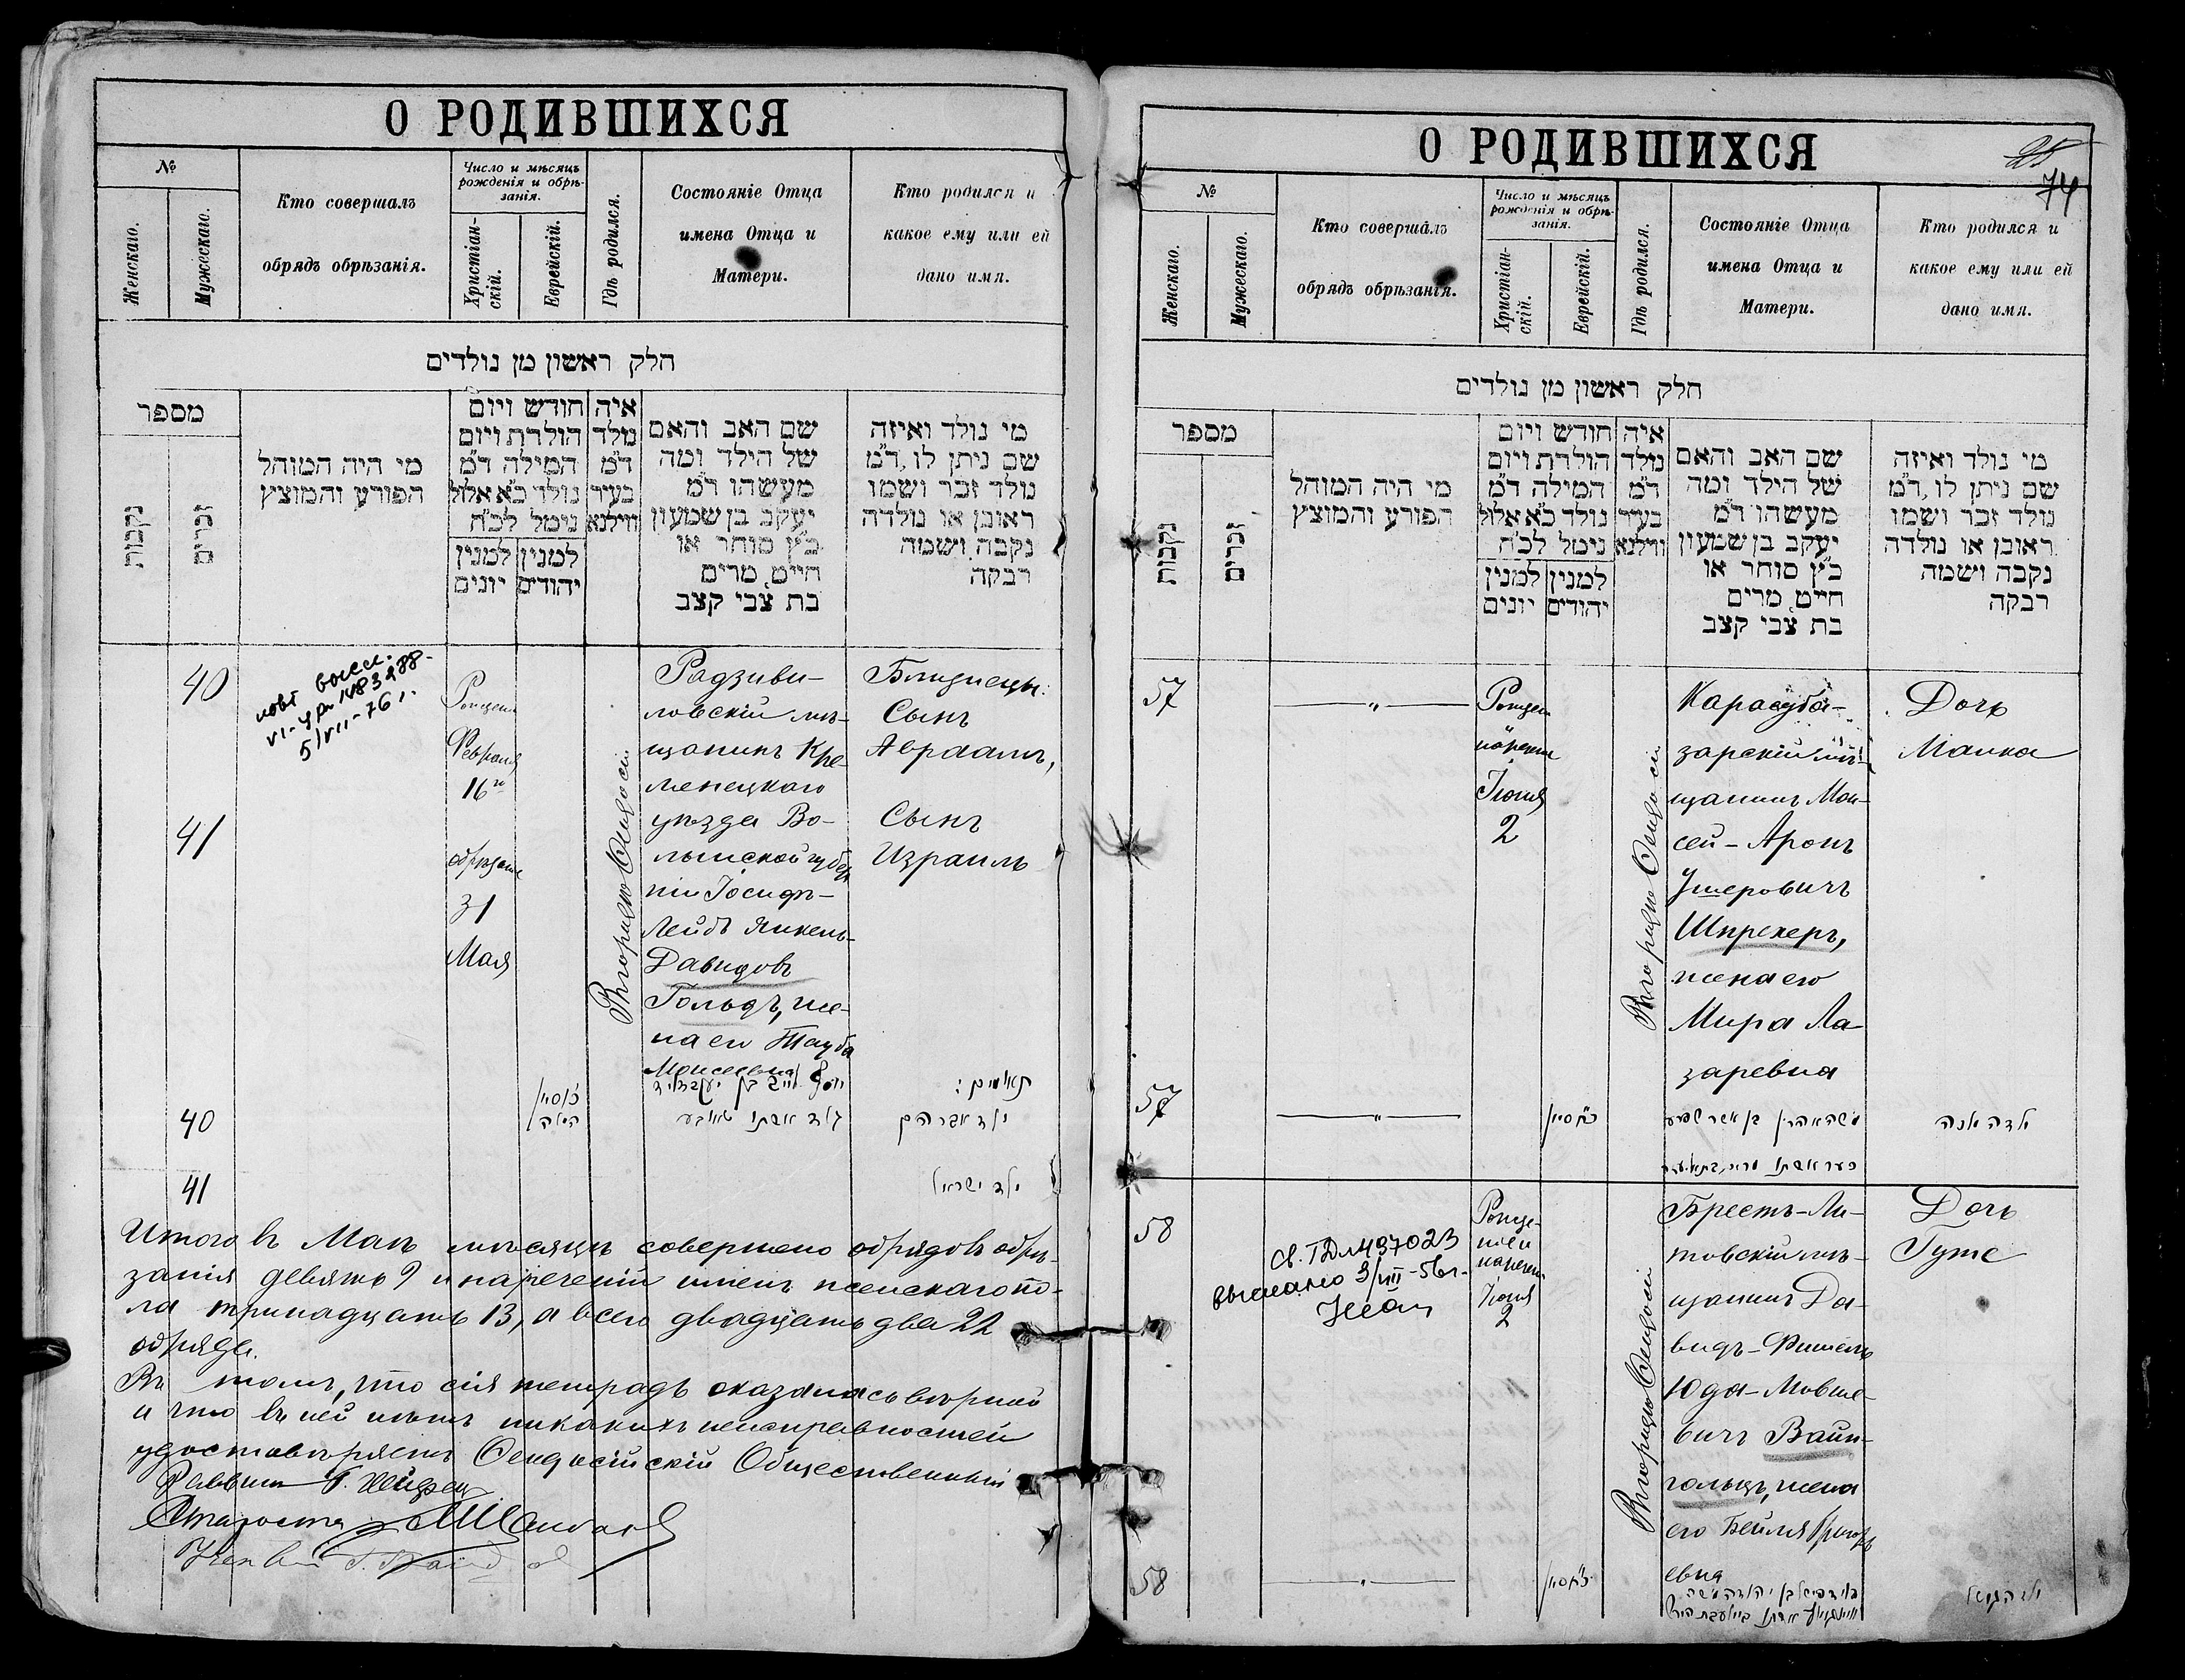 О РОДИВШИХСЯ
№
Женскаго.
Мужескаго.
Кто совершалъ
обрядъ обрѣзанія.
Число и мѣсяцъ
рожденія и обрѣ-
занія.
Христіан-
скій.
Еврейскій.
Гдѣ родился.
Состояніе Отца
имена Отца и
Матери.
Кто родился и
какое ему или ей
дано имя.
חלק ראשון מן נולדים
מספר
נקבות
זכרים
מי היה המוהל
הפורע והמוצץ
חודש ויום
הולדת ויום
המילה ד״מ
נולד כ״א אלול
נימל לכ״ח
למנין
יהודים
למנין
יונים
איה
נולד
ד״מ
בעיר
ווילנא
שם האב והאם
של הילד ומה
מעשהו ד״מ
יעקב בן שמעון
כ״ץ סוחר או
חייט, מרים
בת צבי קצב
מי נולד ואיזה
שם ניתן לו, ד״מ
נולד זכר ושמו
ראובן או נולדה
נקבה ושמה
רבקה
40
41
5/VII-76 г.
Февраля
16го
обрѣзаны
31
Мая
Въ городѣ Ѳеодосіи
Радзиви-
ловскій мѣ-
щанинъ Кре-
менецкаго
уѣзда Во-
лынской губер-
ніи Іосифъ-
Лейбъ Янкель-
Давидовъ
Гольдъ, же-
на его Тауба
Моисеевна
Близнецы:
Сынъ
Авраамъ,
Сынъ
Израиль
40
גולד אשתו טאובע
תאומים:
ילד אברהם
41
ילד ישראל
Итого въ Маѣ мѣсяцѣ совершено обрядовъ обрѣ-
занія девять 9 и нареченій именъ женскаго по-
ла тринадцать 13, а всего двадцать два 22
обряда.
Въ томъ, что сія тетрадь оказалась вѣрной
и что въ ней нѣтъ никакихъ неисправностей
удостовѣряетъ Ѳеодосійскій Общественный
Раввинъ
Староста
О РОДИВШИХСЯ
25
74
№
Женскаго.
Мужескаго.
Кто совершалъ
обрядъ обрѣзанія.
Число и мѣсяцъ
рожденія и обрѣ-
занія.
Христіан-
скій.
Еврейскій.
Гдѣ родился.
Состояніе Отца
имена Отца и
Матери.
Кто родился и
какое ему или ей
дано имя.
חלק ראשון מן נולדים
מספר
נקבות
זכרים
מי היה המוהל
הפורע והמוצץ
חודש ויום
הולדת ויום
המילה ד״מ
נולד כ״א אלול
נימל לכ״ח
למנין
יהודים
למנין
יונים
איה
נולד
ד״מ
בעיר
ווילנא
שם האב והאם
של הילד ומה
מעשהו ד״מ
יעקב בן שמעון
כ״ץ סוחר או
חייט, מרים
בת צבי קצב
מי נולד ואיזה
שם ניתן לו, ד״מ
נולד זכר ושמו
ראובן או נולדה
נקבה ושמה
רבקה
57
— „ —
Іюня
2
Въ городѣ Ѳеодосіи
Карасуба-
зарскій мѣ-
щанинъ Мои-
сей-Аронъ
Ушеровичъ
Шпрехеръ,
жена его
Мира Ла-
заревна
Дочь
Манка
57
— „ —
כ״ח סיון
משה אהרן בן אשר
58
св. ГДл №37023
выслано 3/VIII-56 г.
Іюня
2
Въ городѣ Ѳеодосіи
Брестъ-Ли-
товскій мѣ-
щанинъ Да-
видъ-Фишель
Юда-Мовше-
вичъ Вайн-
гольцъ, жена
его Бейля
евна
Дочь
Гутс
58
— „ —
כ״ח סיון